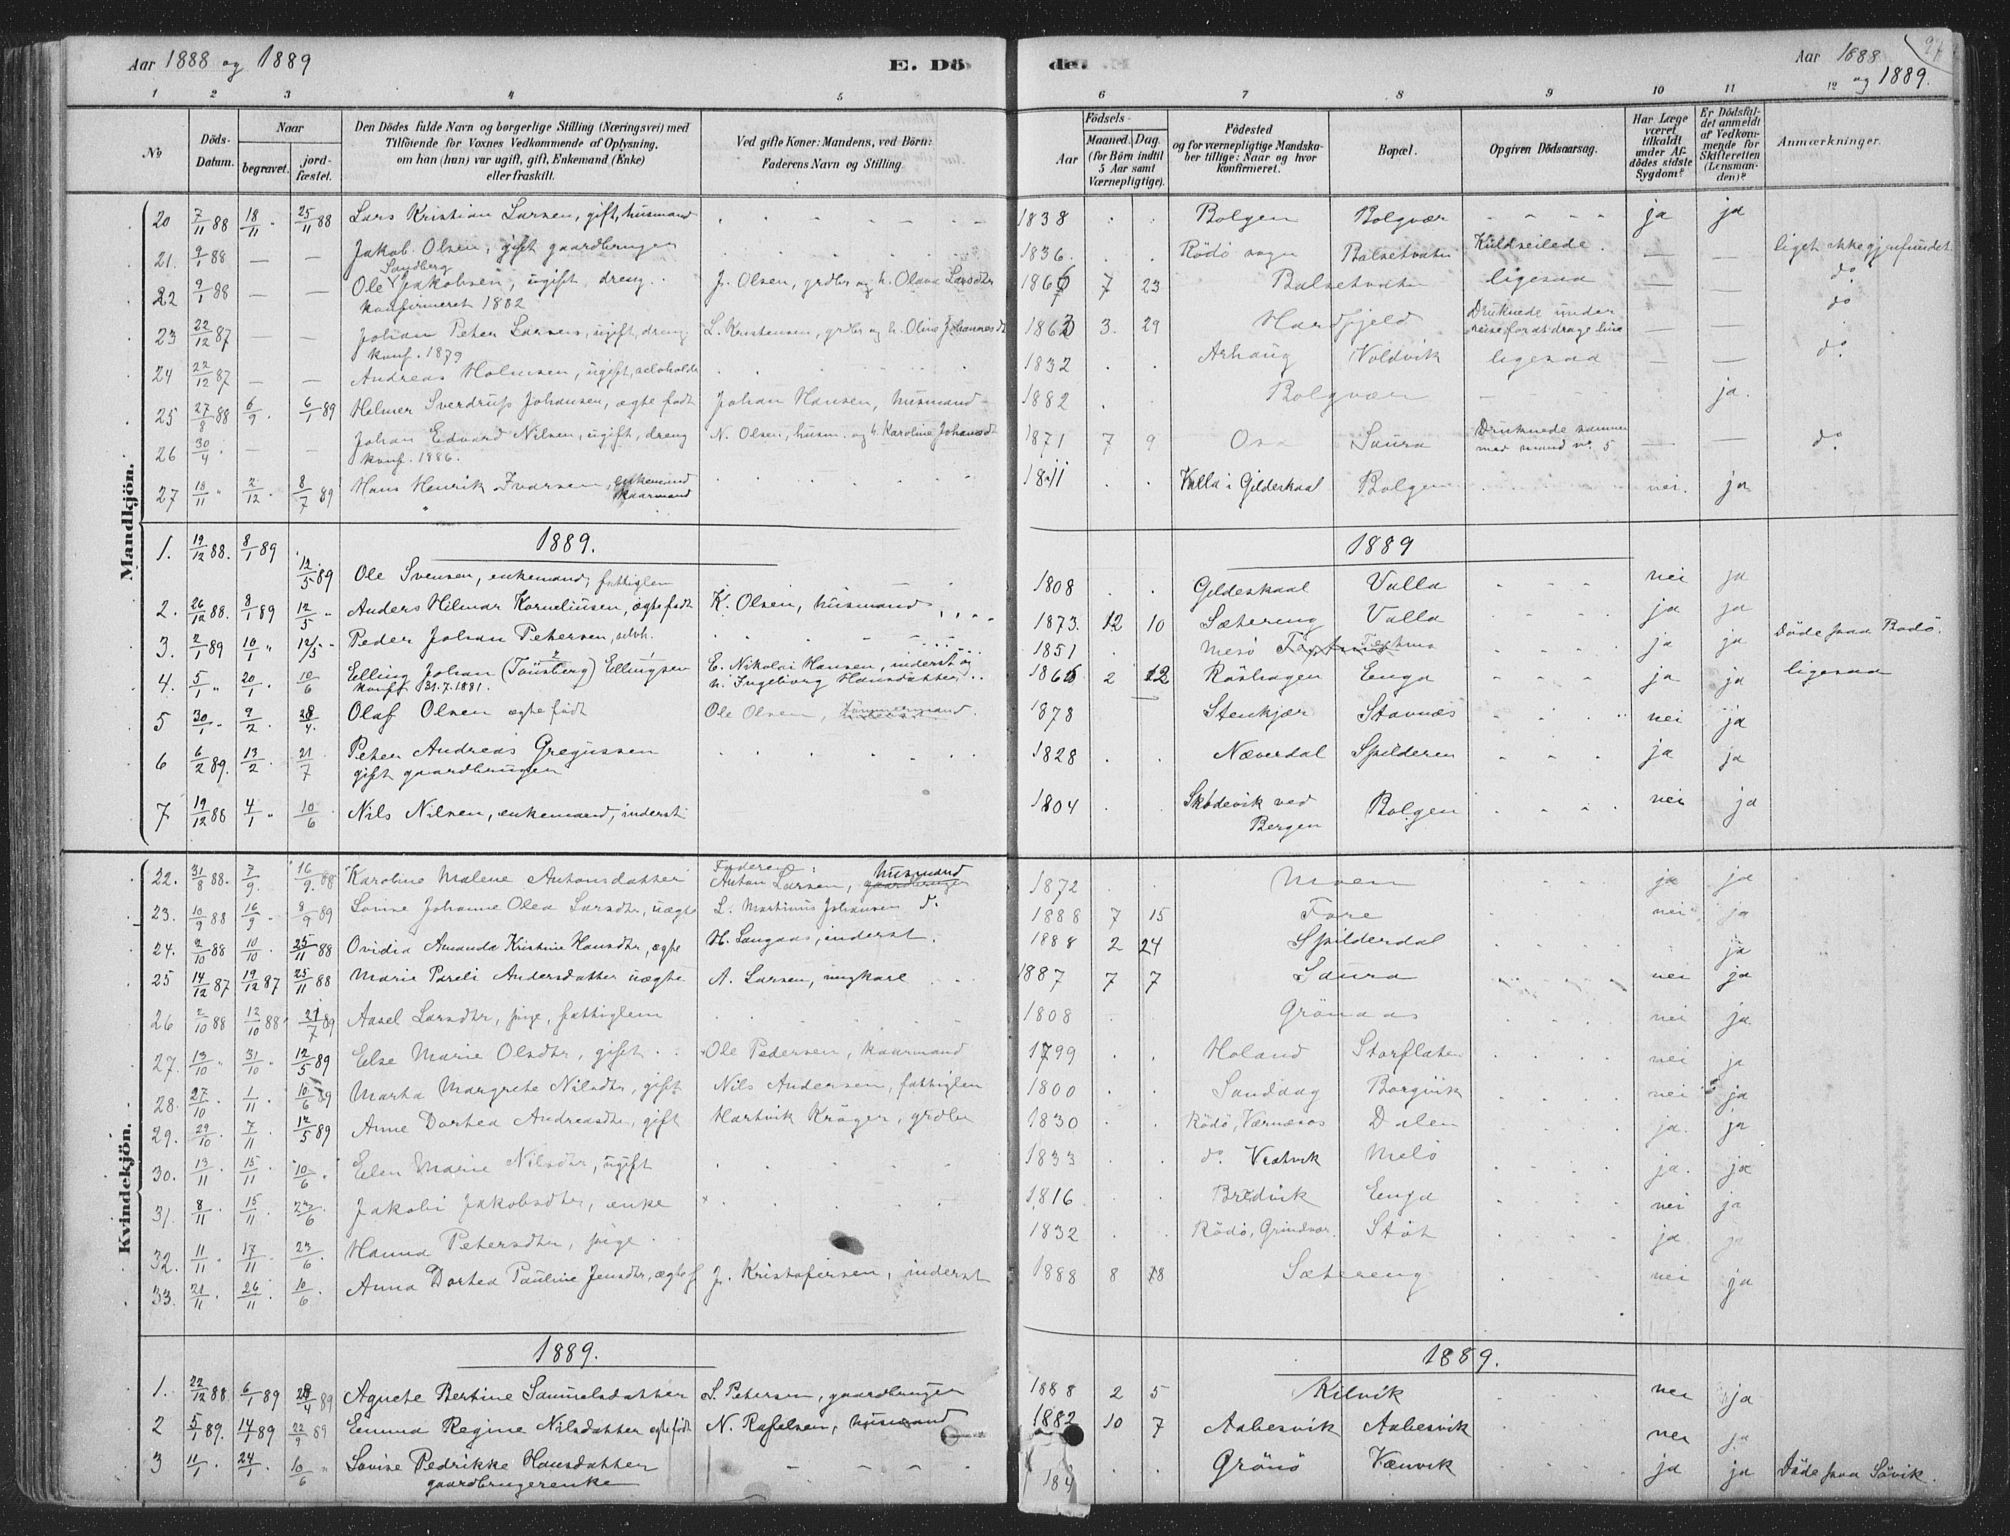 Aar 1888 og 1889
E. Dö
de.
Aar 1888 og 1889.
1 2 3 4 5 6 7 8 9 10 11 12
No
Döds-Datum.
Naar
begravet.
jord-fæstet.
Den Dödes fulde Navn og borgerlige Stilling (Næringsvei) med
Tilföiende for Voxnes Vedkommende af Oplysning,
om han (hun) var ugift, gift, Enkemand (Enke)
eller fraskilt.
Ved gifte Koner: Mandens, ved Börn:
Faderens Navn og Stilling.
Födsels-
Aar
Maaned. Dag.
(for Börn indtil
5 Aar samt
Værnepligtige).
Födested
og for værnepligtige Mandska-
ber tillige: Naar og hvor
konfirmeret.
Bopæl.
Opgiven Dödsaarsag.
Har Læge
været
tilkaldt
under Af-
dödes sidste
Sygdom?
Er Dödsfal-
det anmeldt
af Vedkom-
mende for
Skifteretten
(Lensman-
den)?
Anmærkninger.
Mandkjön.
20 7/11 88 18/11 " 25/11 88 Lars Kristian Larsen, gift, husmand 1838 Bolgen Bolgvær ja ja
21. 9/1 88 — — Jakob Olsen, gift gaardbruger 1836 Rödö sogn Balsetvaten Kuldseilede. — — liget ikke gjenfundet
22 9/1 88 — — Ole Sandberg Jakobsen, ugift, dreng J. Olsen, grdbr og h. Olava Larsdtr 1866 7 23 Balsetvaten ligesaa — — do
konfirmeret 1882
23 22/12 87 Johan Peter Larsen, ugift, dreng L. Kristensen, grdbr og h. Oline Johannesdt 1863 3. 29 Hardfjeld Druknede under — — do
konf. 1879
24 22/12 87 — — Andreas Holmsen, ugift, selvholde 1832 Arhaug Voldvik ligesaa — — do.
25 27/8 88 6/9 6/1 89 Helmer Sverdrup Johansen, ægte født Johan Hansen, husmand 1882 Bolgvær ja.
26 30/4 — — Johan Edvard Nilsen, ugift, dreng N. Olsen, husm. og h. Karoline Johansdt 1871 7 9 Osa Saura Druknede sammen med mand no. 5 — — do
konf. 1886.
27 18/11 " 2/12 8/7 89 Hans Henrik Ivarsen, enkemand kaarmand 1811 Valla i Gildeskaal Bolgen nei. ja
1889. 1889
1. 19/12 88. 8/1 89 12/5 89 Ole Svensen, enkemand, fattiglem 1808 Gildeskaal Valla nei ja
2. 26/12 88. 8/1 89 12/5 " Anders Hilmar Korneliusen, ægte født K. Olsen, husmand 1873. 12 10 Sætereng Valla ja ja
3. 2/1 89 10/1 " 12/5 " Peder Johan Petersen, selvh. 1851 Mesö ja ja Döde paa Bodö.
4. 5/1 " 20/1 10/6 Elling Johan (Tönsberg) Ellingsen E. Nikolai Hansen, inderst og 1866 2 12 Röshagen Enga ja ja ligesaa
konf. 31.7.1881. h. Ingeborg Hansdatter
5 30/1 9/2 28/4. Olaf Olsen ægte født Ole Olsen, 1878 Stenkjær Stavnes nei ja
6 6/2 89. 13/2 21/7 Peter Andreas Gregussen 1828 Næverdal Spilderen ja ja
gift gaardbruger
7 19/12 88 4/1 " 10/6 Nils Nilsen, enkemand, inderst 1804 Sködevik ved Bergen Bolgen nei ja
Kvindekjön.
22. 31/8 88. 7/9. 16/9 88 Karoline Malene Antonsdatter Faderen: Anton Larsen, husmand gaardbruger 1872 Moen ja ja
23. 10/9 88 16/9 8/9 89 Lovise Johanne Olea Larsdtr, uægte L. Martinus Johansen 1888 7 15 Fore nei ja
24. 2/10 88 10/10 25/11 88 Ovidia Amanda Kristine Hansdtr, ægte H. Langaas, inderst. 1888 2 24 Spilderdal ja
25 14/12 87 19/12 87 25/11 88 Marie Pareli Andersdatter uægte A. Larsen, ungkarl 1887 7 7 Saura nei ja
26 2/10 88 12/10 88 21/7 89 Aasel Larsdtr, pige, fattiglem 1808 Grönaas nei ja
27. 13/10 31/10 12/5 89 Else Marie Olsdtr, gift Ole Pedersen, kaarmand 1799 Holand Storflaten nei ja
28. 27/10 1/11 10/6 89 Marta Margrete Nilsdtr, gift Nils Andersen, fattiglem 1800 Sandaag Borgvik nei ja
29. 29/10 7/11 12/5 89 Anne Dortea Andreasdtr, gift Hartvik Kröger, grdbr 1830 Rödö, Værnæsos Dalen ja. ja
30. 13/11 15/11 10/6 Elen Marie Nilsdtr, ugift 1833 do. Melö ja. ja
31. 8/11 15/11 27/6 Jakobi Jakobsdtr, enke 1816 Bredvik Enga nei ja
32. 11/11 17/11 23/6 Hanna Petersdtr, pige 1832 Rödö, Stöt ja ja
33. 21/11 26/11 10/6 Anna Dortea Pauline Jensdtr, ægte f J. Kristofersen, inderst 1888 8 18 Sætereng nei ja
1889. 1889.
1. 22/12 88. 6/1 89 28/4 89 Agnete Bertine Samuelsdatter S. Petersen, gaardbruger 1888 2 5 Kilvik nei ja
2 5/1 89. 14/1 89 22/9 89 Emma Regine Nilsdatter ægte født N. Rafelsen, husmand 1882 10 7 Aabesvik Aabesvik nei ja
3 11/1 24/1 10/6 " Lovise Pedrikke Hansdatter — — — Grönö Vænvik ja ja Döde paa Sövik.
gaardbrugerenke